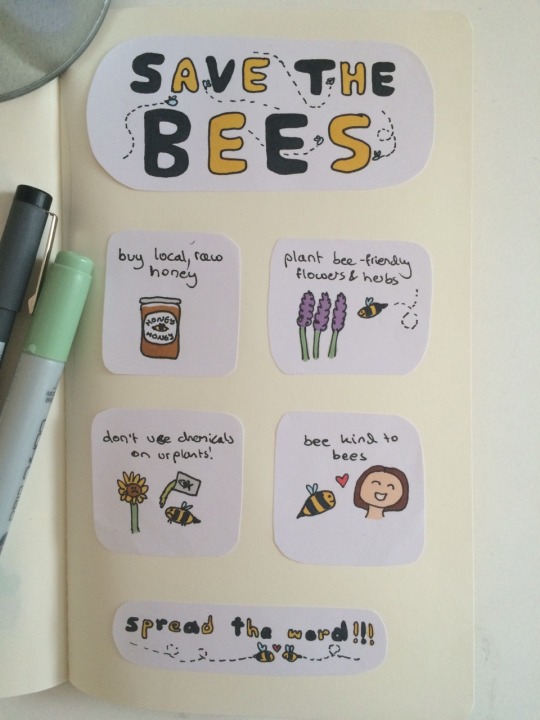 SAVE THE
BEES
buy local, raw
honey
HONEY
HONEY
plant bee-friendly
flowers & herbs
don't use chemicals
on ur plants!
bee kind to
bees
spread the word!!!